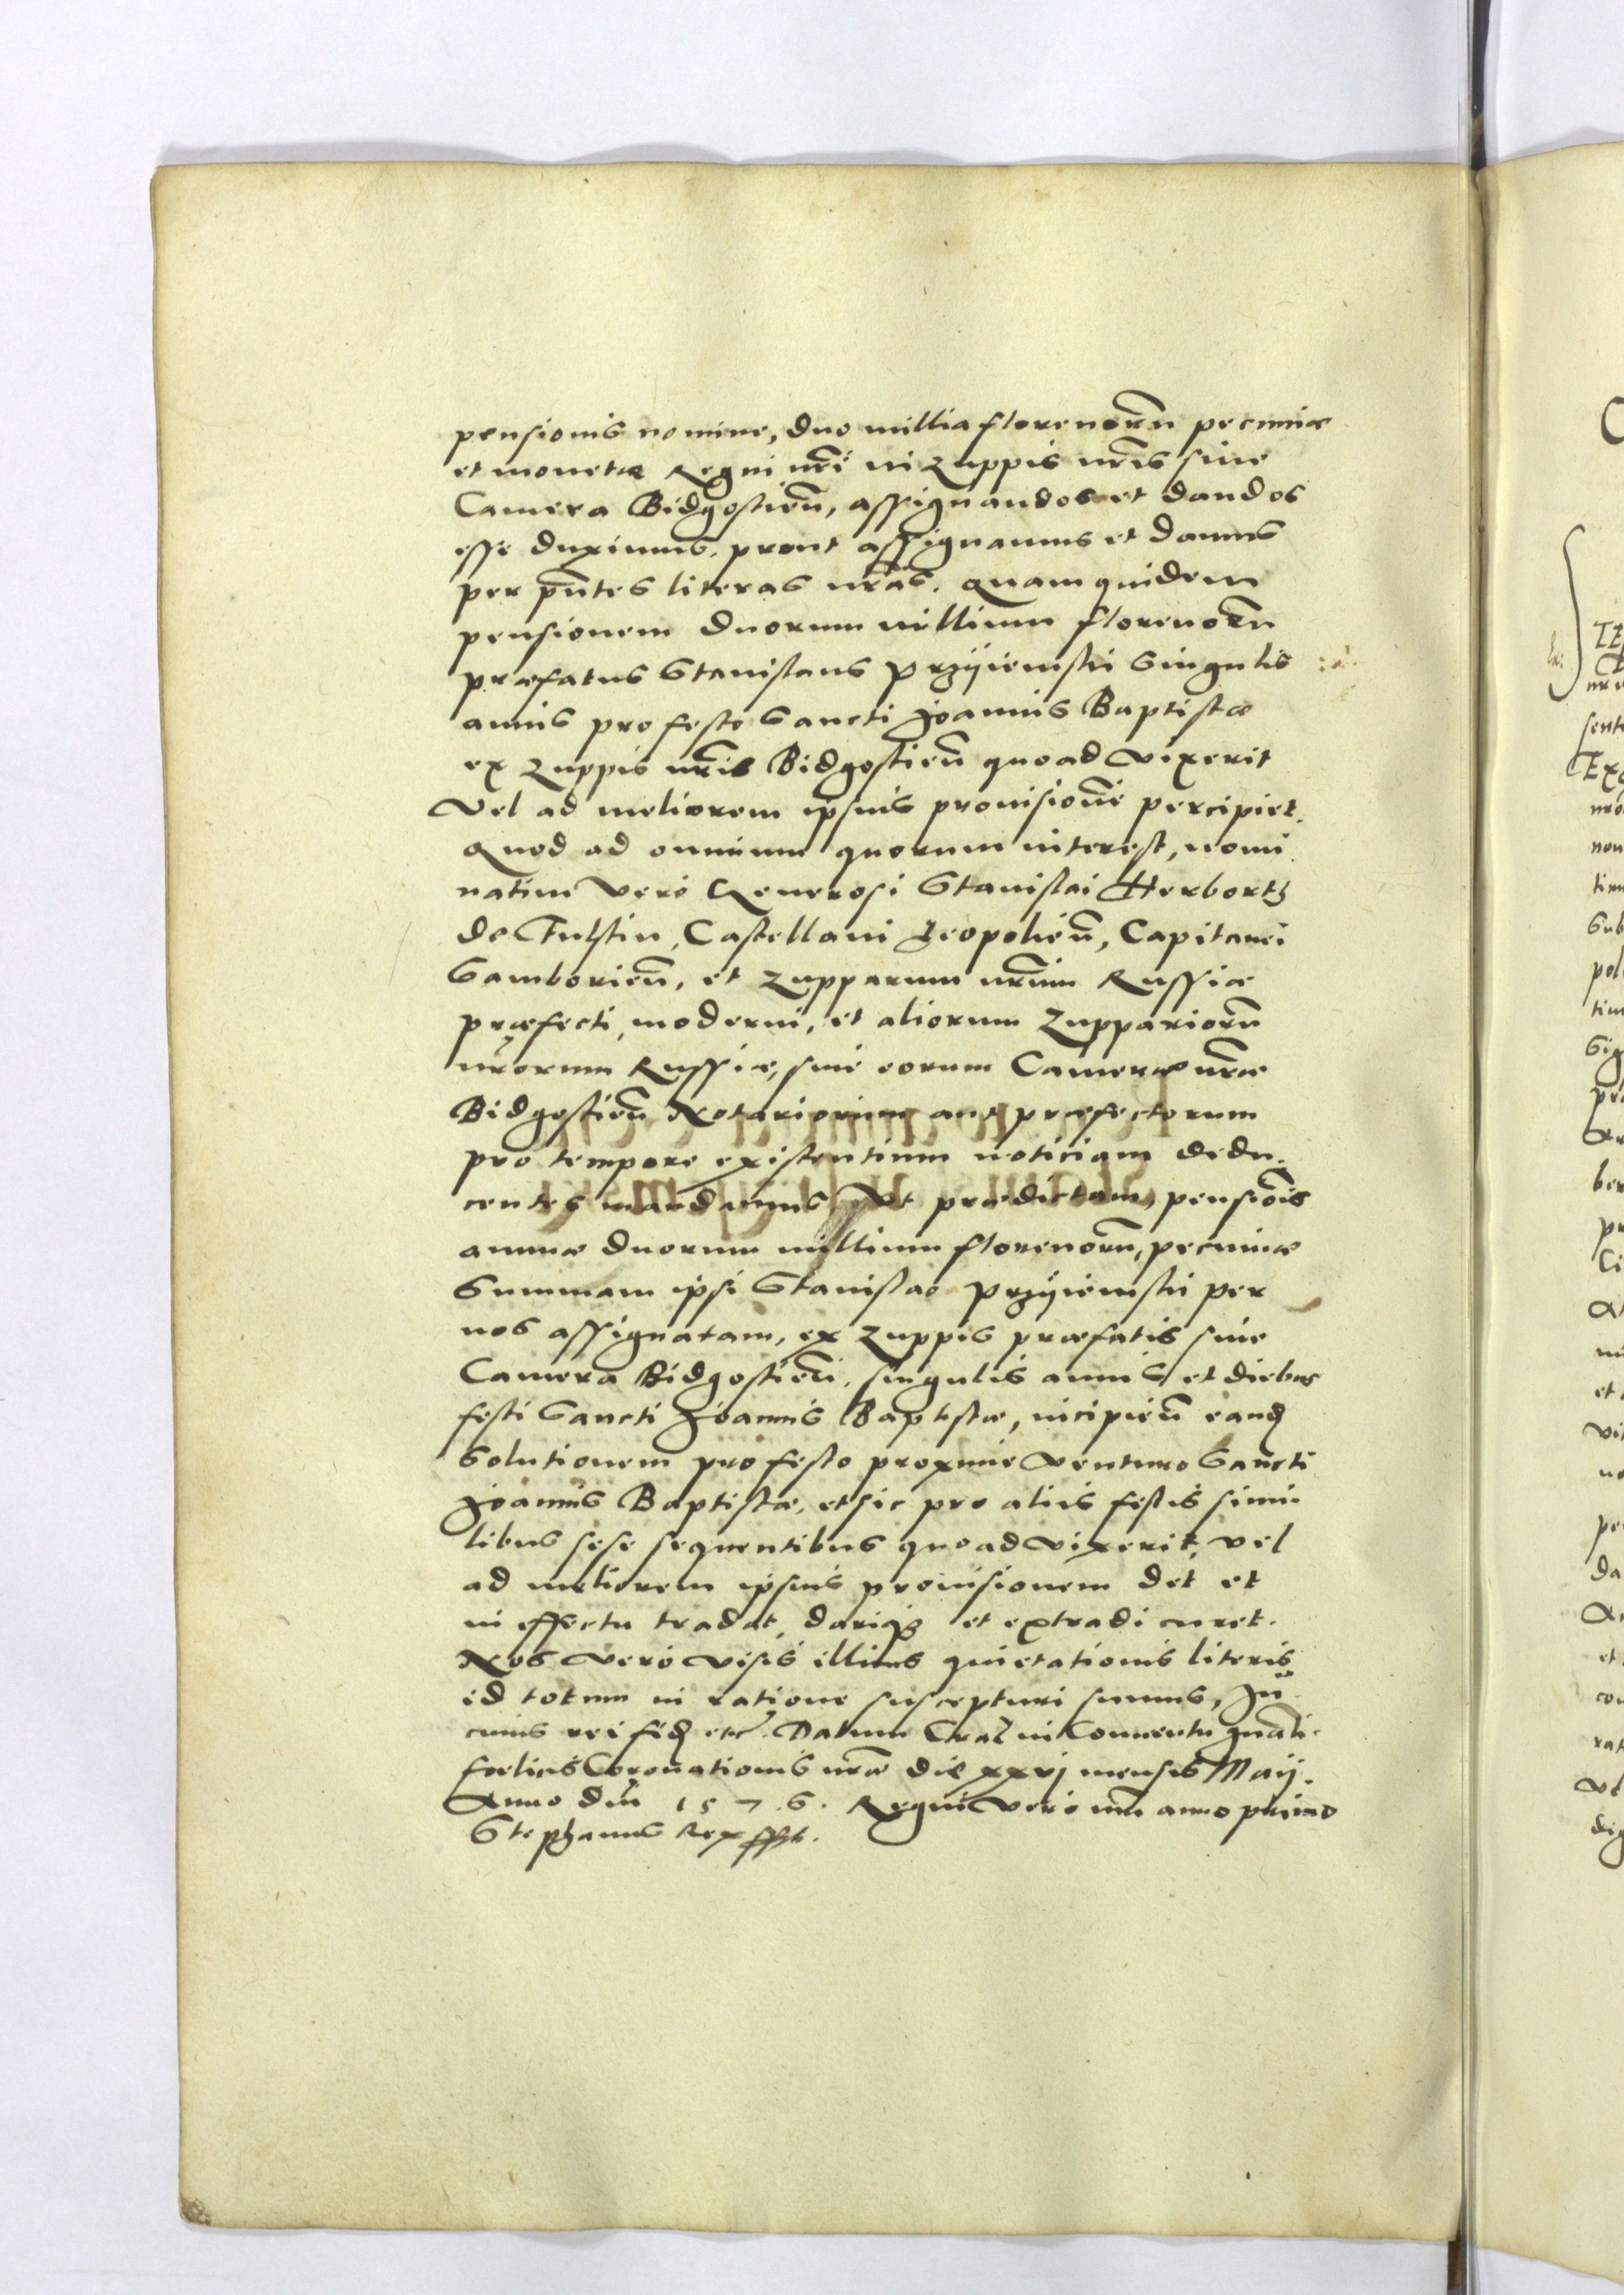 pensionis nomine, duo millia florenorũ pecuniæ
et monetæ Regni nr̃i in Zuppis nr̃is siue
Camera Bidgostien̄, assignandos et dandos
esse duximus, prout assignamus et damus
per pn̄tes literas nr̃as. Quam quidem
pensionem duorum millium florenorũ
præfatus Stanislaus Przÿiemski Singulis
annis pro festo Sancti Joannis Baptistæ
ex Zuppis nr̃is Bidgostien̄ quoad vixerit
Vel ad meliorem ipsius prouisionē percipiet.
Quod ad omnium quorum interest, nomi
natim vero Generosi Stanislai Herborth
de Fulstin, Castellani Leopolien̄, Capitanei
Samborien̄, et Zupparum nr̃arum Russiæ
præfecti moderni, et aliorum Zuppariorũ
nr̃orum Russiæ, siue eorum Cameræ nr̃æ
Bidgostien̄ Notariorum aut præfectorum
pro tempore existentium noticiam dedu-
centes mandamus Vt prædictam pensiōis
annuæ duorum millium florenorũ, pecuniæ
Summam ipsi Stanislao Przÿiemski per
nos assignatam, ex Zuppis præfatis siue
Camera Bidgostien̄, singulis annis et diebus
festi Sancti Joannis Baptistæ, incipien̄ eand
Solutionem pro festo proxime Venturo Sancti
Joannis Baptistæ, et sic pro aliis festis simi
libus sese sequentibus quoad vixerit, vel
ad meliorem ipsius prouisionem det et
in effectu tradat, dariqꝫ et extradi curet.
Nos vero visis illius quietationis literis
id totum in ratione suscepturi sumus, In
cuius rei fid etc. Datum Crac in Conuentu gnāli
fœlicis Coronationis nr̃æ die xxvj mensis Maij.
Anno Dn̄i 1576. Regni vero nr̃i anno primo
Stephanus Rex sst.